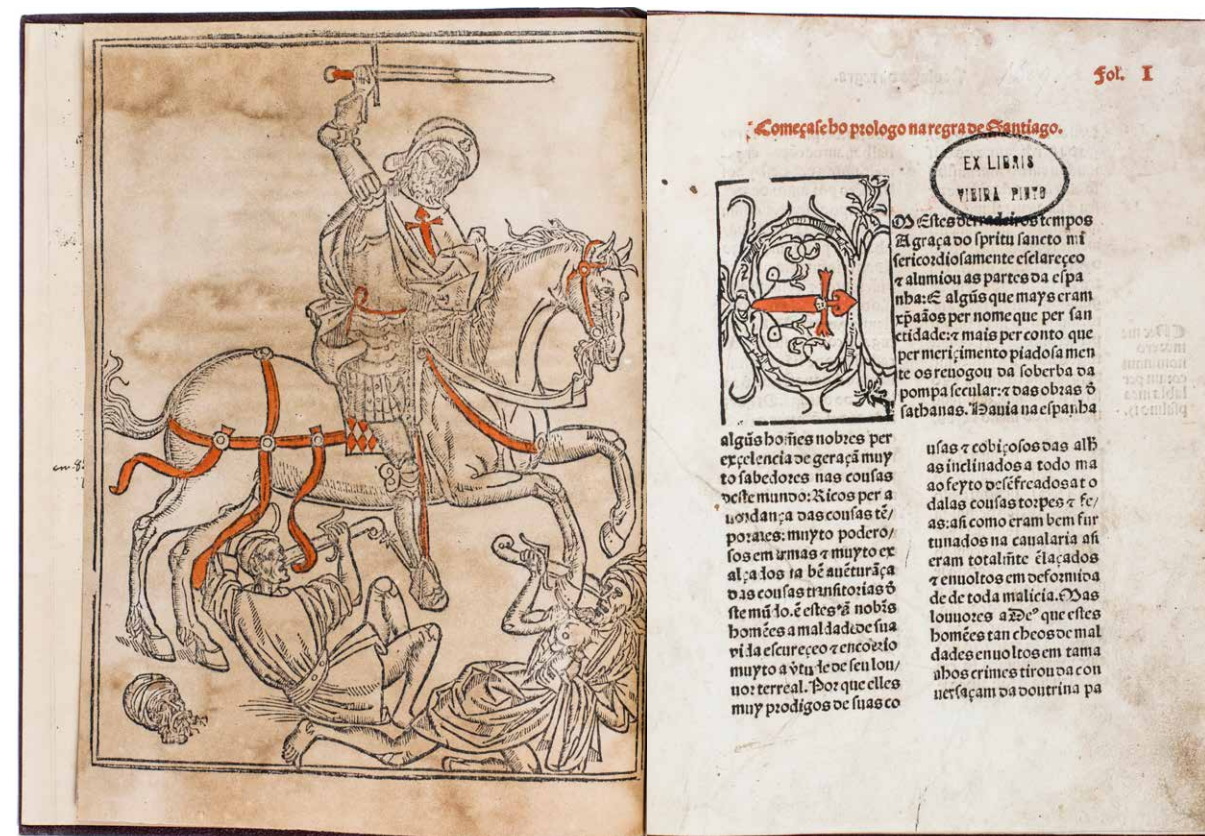 Fol. I
Começase ho prologo na regra de Santiago.
EX LIBRIS
VIEIRA PINTO
M Estes derradeiros tempos
A graça do spritu sancto mi
sericordiosamente esclareçeo
⁊ alumiou as partes da espa
nha: E algũs que mays eram
xp̃aãos per nome que per san
ctidade: ⁊ mais per conto que
per meriçimento piadosa men
te os reuogou da soberba da
pompa secular: ⁊ das obras d̃
sathanas. Hauia na espanha
algũs homẽs nobres per
exçelencia de geraçã muy
to sabedores nas cousas
deste mundo: Ricos per a
uondança das cousas tẽ/
porales: muyto podero/
sos em armas ⁊ muyto ex
alçados na bẽ auẽturãça
das cousas transitorias d̃
ste mũdo. ẽ estes tã nobr̃s
homẽes a maldade de sua
vida escureçeo ⁊ encobrio
muyto a v̓tude de seu lou/
uor terreal. Por que elles
muy prodigos de suas co
usas ⁊ cobiçosos das alh̃
as inclinados a todo ma
ao feyto desẽfreados a t o
dalas cousas torpes ⁊ fe/
as: asi como eram bem fur
tunados na caualaria asi
eram totalmẽte ẽlaçados
⁊ enuoltos em deformida
de de toda malicia. Mas
louuores a De⁹ que estes
homẽes tan cheos de mal
dades enuoltos em tama
nhos crimes tirou da con
uersaçam da doutrina pa